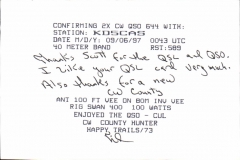 CONFIRMING 2X CW QSO 644 WITH:
STATION: KD5CAS
DATE M/D/Y: 09/06/97 0043 UTC
40 METER BAND RST:589
Thanks Scott for the QSL and QSO.
I like your QSL card very much.
Also thanks for a new
CW County
ANT 100 FT VEE ON 80M INV VEE
RIG SWAN 400 100 WATTS
ENJOYED THE QSO - CUL
CW COUNTY HUNTER
HAPPY TRAILS/73